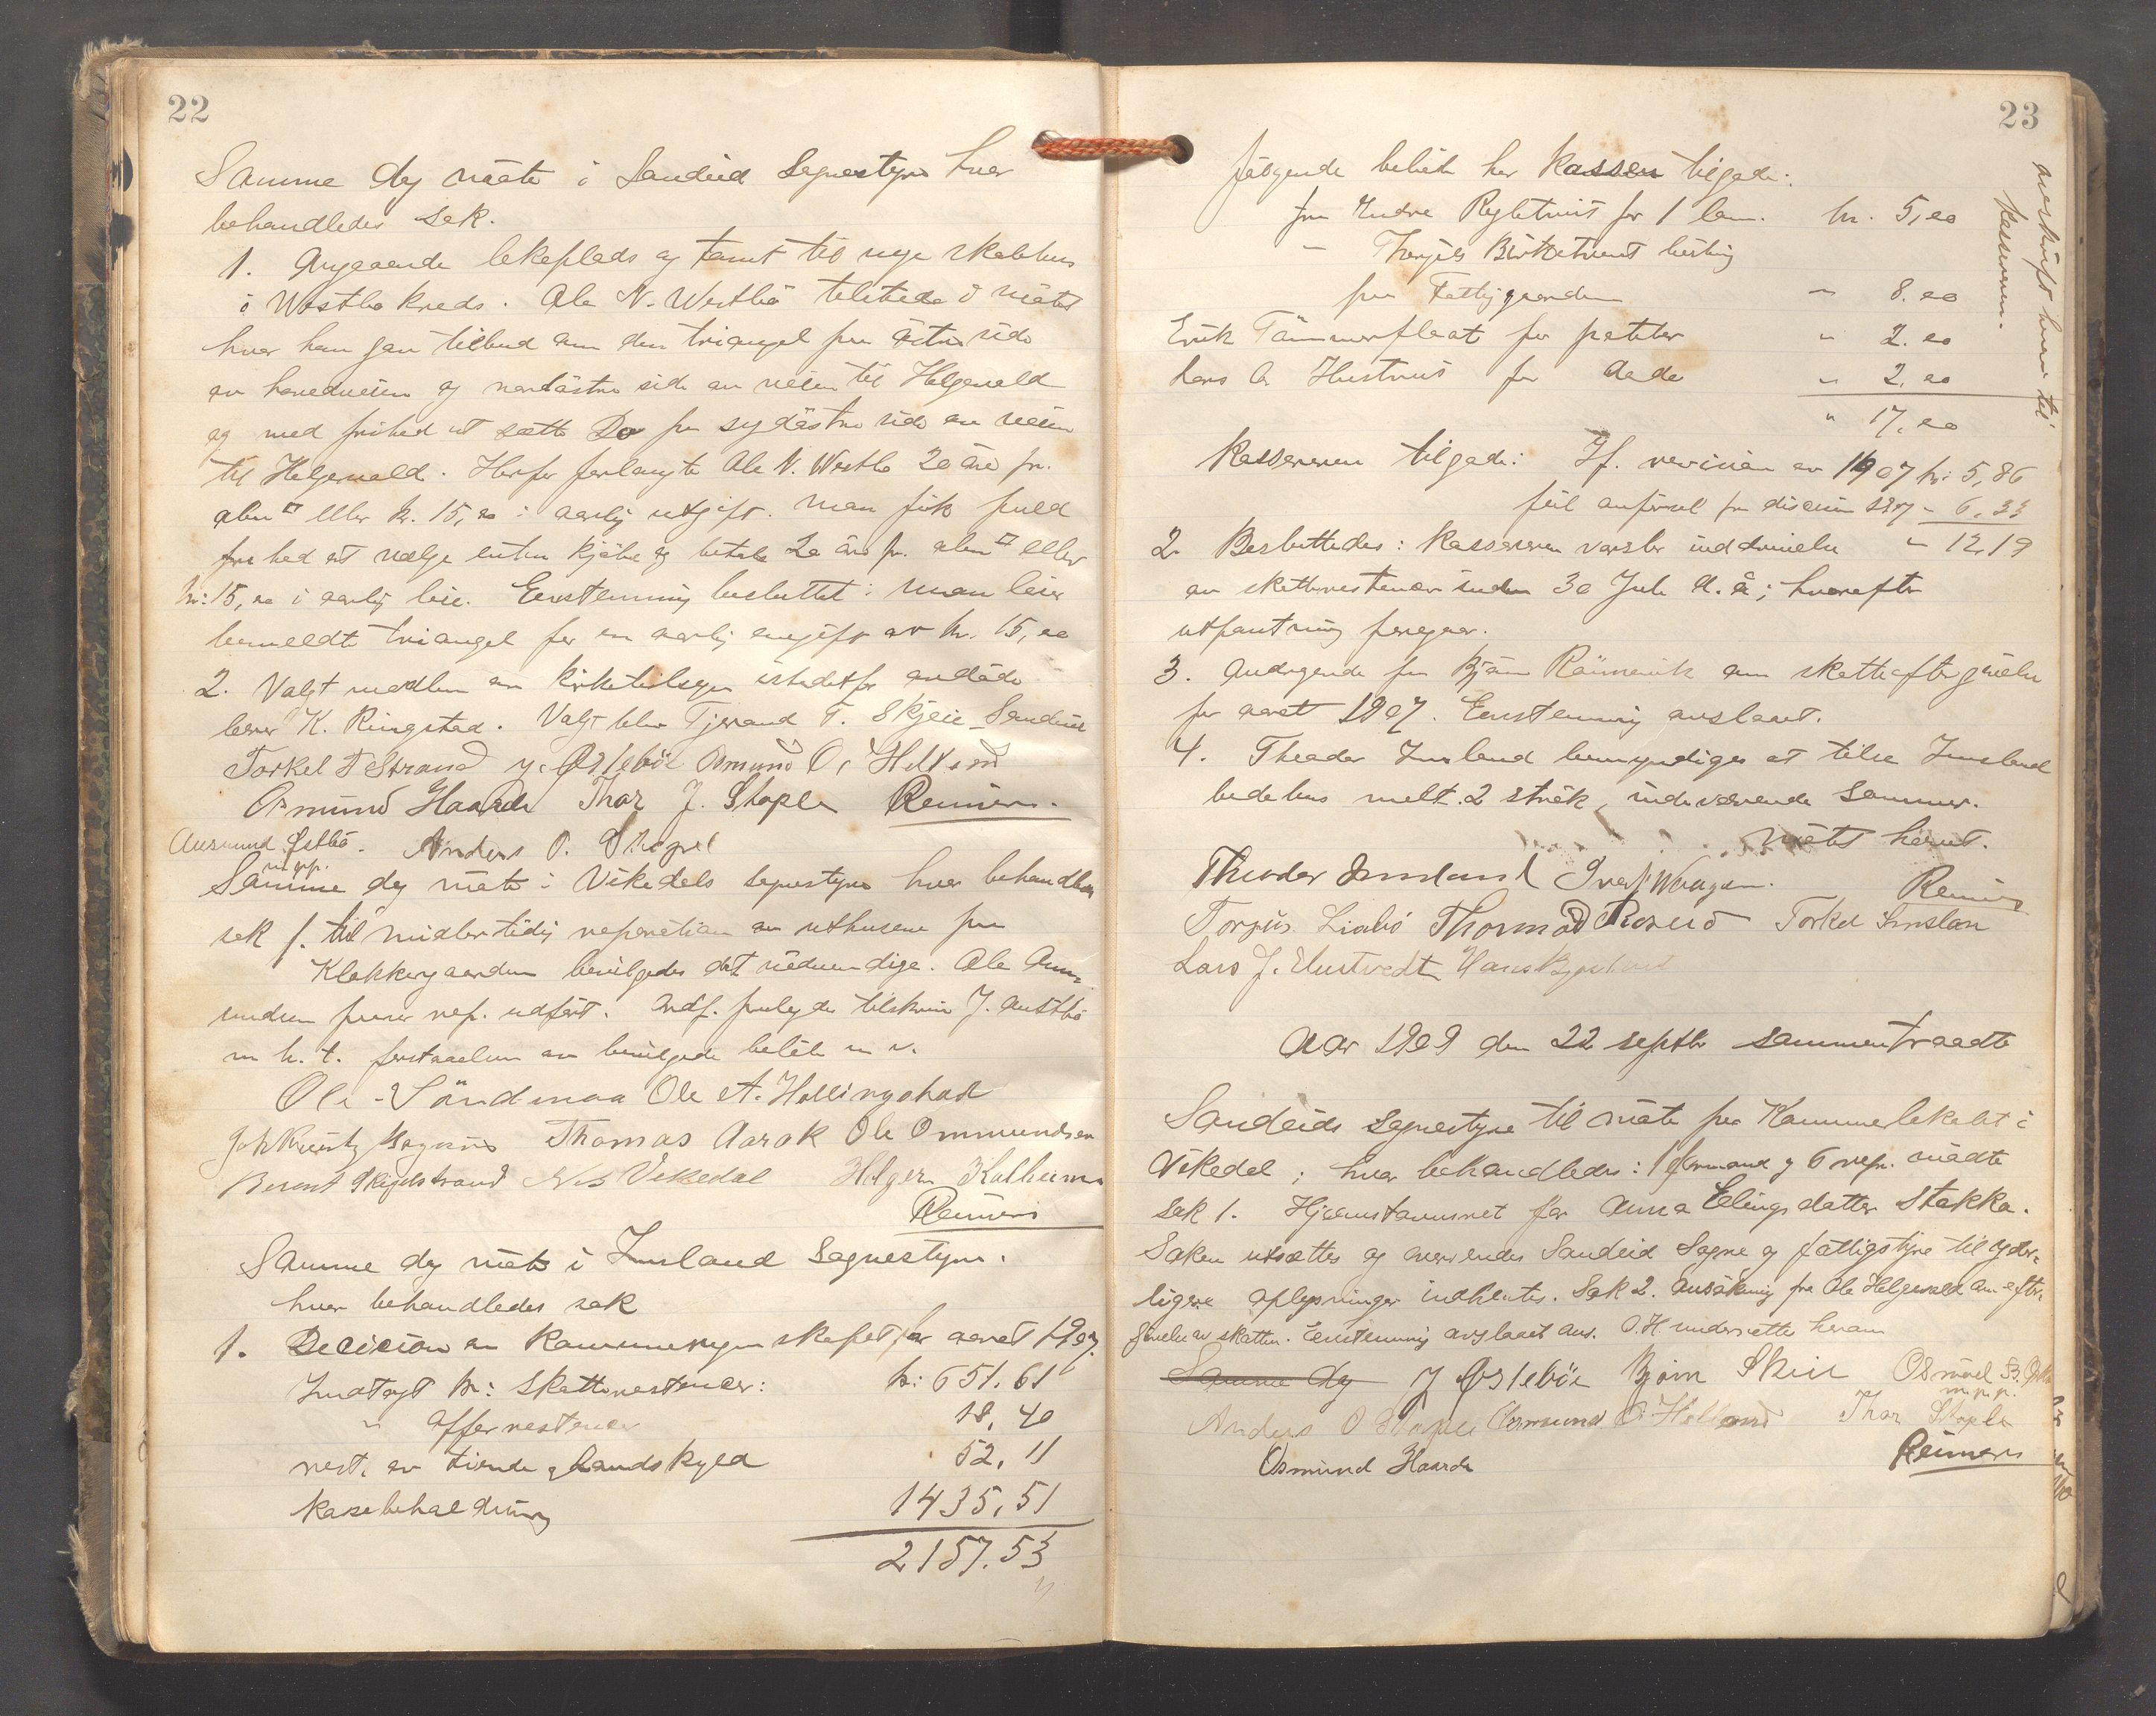 22
Samme dag møte i Sandeid Sognestyre hvor
behandledes sak.
1. Angaaende lekeplads og tomt til nye skolehus
i Westbø kreds. Ole N. Westbø tilstede i møtet
hvor han gav tilbud om den triangel paa østre side
av hovedveien og nordøstre side av veien til Helgevold
og med frihed at sætte Do paa sydøstre side av veien
til Helgevold. Herfor forlangte Ole N. Westbø 20 øre pr.
alen□ eller kr. 15,00 i aarlig utgift. Man fik fuld
frihed at vælge enten kjøbe og betale 20 øre pr. alen□ eller
kr: 15,00 i aarlig leie. Eenstemmig besluttet: man leier
bemeldte triangel for en aarlig avgift av kr. 15,00
2. Valgt medlem av kirketilsyn istedetfor avdøde
lærer K. Ringstad. Valgt blev Tjerand T. Skjeie Sandeid
Torkel T Strand J. Østebøe Osmund O. Helland
Osmund Haarde Thor J. Stople Reimers.
Aasmund Østbø. Anders O. Stople
m.p.p.
Samme dag møte i Vikedals sognestyre hvor behandledes
sak 1. til midlertidig reparation av uthusene paa
Klokkergaarden bevilgedes det nødvendige. Ole Om-
mundsen faar rep. udført. Ordf. paalagdes tilskrive J. Austbø
m h. t. forstaaelsen av bevilgede beløb m v.
Ole Søndenaa Ole A. Hallingstad
Joh Kreutz Magnus Thomas Aarak Ole Ommundsen
Berent Skigelstrand Nils Vikedal Helger Kalheim
Reimers
Samme dag møte i Imsland Sognestyre.
hvor behandledes sak
1. Decicion av Kommuneregnskapet for aaret 1907.
Indtægt kr: Skatterestencer: kr: 651.61
" offerrestencer 18,40
rest. av tiende & Landskyld 52,11
kassebeholdning 1435,51
2157.53
23
følgende beløb har kassen tilgode:
fra Endre Rygtveit for 1 lam. kr. 5,00
" Thorgils Birketveit
fra Fattiggaarden " 8.00
Erik Tømmerflaat for poteter " 2.00
Lars O. Hustveit for do do " 2.00
" 17,00
overført hvori til
kassereren.
Kassereren tilgode: If. revision av 1907 kr: 5,86
feil anførsel fra dision 1907 " 6.33
2. Besluttedes: Kassereren varsler inddrivelse " 12,19
av skatterestencer inden 30 Juli d. å; hvorefter
utpantning foregaar.
3. Andragende fra Bjørn om skatteeftergivelse
for aaret 1907. Eenstemmig avslaaet.
4. Theodor Imsland bemyndiges at tilse Imsland
bedehus malt 2 strøk, indeværende sommer.
Møtet hævet.
Theodor Imsland Reimers
Torgils Liabø Thormod Roseid Torkel Imsland
Lars J. Hustvedt Hans
Aar 1909 den 22 septbr sammentraadte
Sandeids sognestyre til møte paa Kommunelokalet i
Vikedal; hvor behandledes: 1 formand & 6 repr. mødte
Sak 1. Hjemstavnsret for Anna Elingsdatter Stakka.
Saken utsættes og oversendes Sandeid Sogne og fattigstyre til yder-
ligere oplysninger indhentes. Sak 2. Ansøkning fra Ole Helgevold om efter-
givelse av skatten. Eenstemmig avslaaet ans. O.H underrettes herom
Samme dag J Østebøe Bjørn Skeie Osmund
m.p.p.
Anders O Stople Osmund O Helland Thor Stople
Reimers
Osmund Haarde